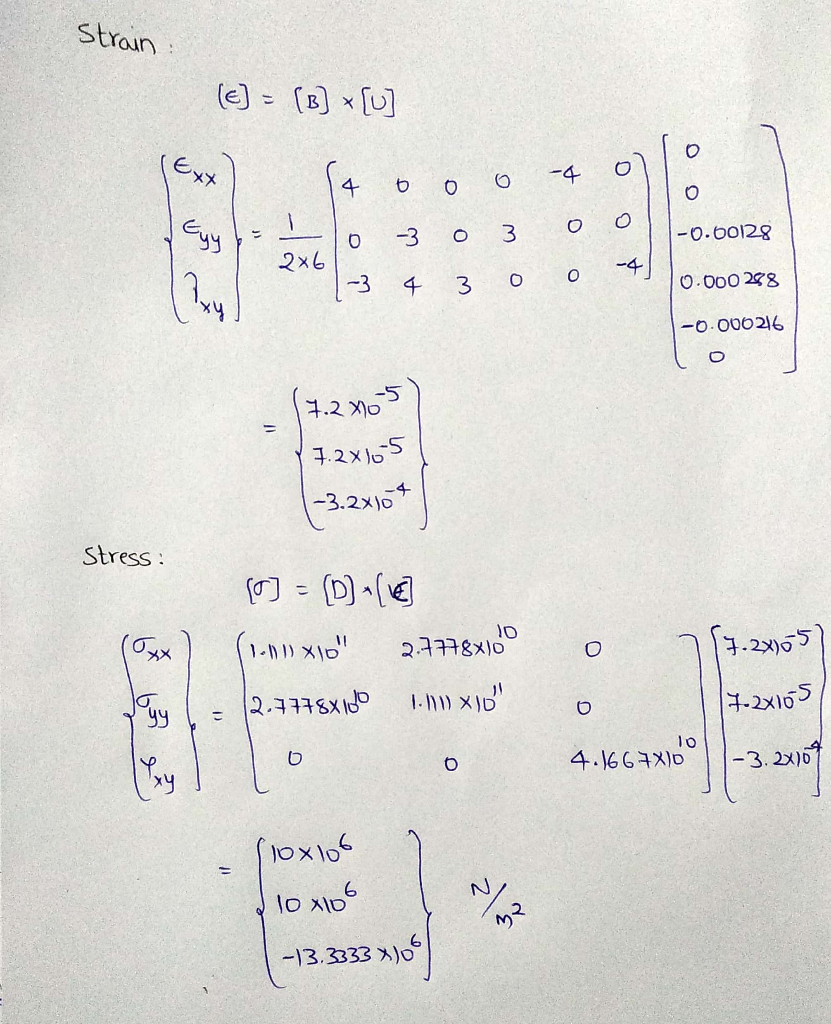 Strain:
[ε] = [B] × [U]
{εxx εyy γxy} = 1/2×6 [4 0 0 0 -4 0; 0 -3 0 3 0 0; -3 4 3 0 0 -4] [0; 0; -0.00128; 0.000288; -0.000216; 0]
= {7.2×10^-5; 7.2×10^-5; -3.2×10^-4}
Stress:
[σ] = [D] × [ε]
{σxx σyy τxy} = [1.1111×10^11 2.7778×10^10 0; 2.7778×10^10 1.1111×10^11 0; 0 0 4.1667×10^10] [7.2×10^-5; 7.2×10^-5; -3.2×10^-4]
= {10×10^6; 10×10^6; -13.3333×10^6} N/m²